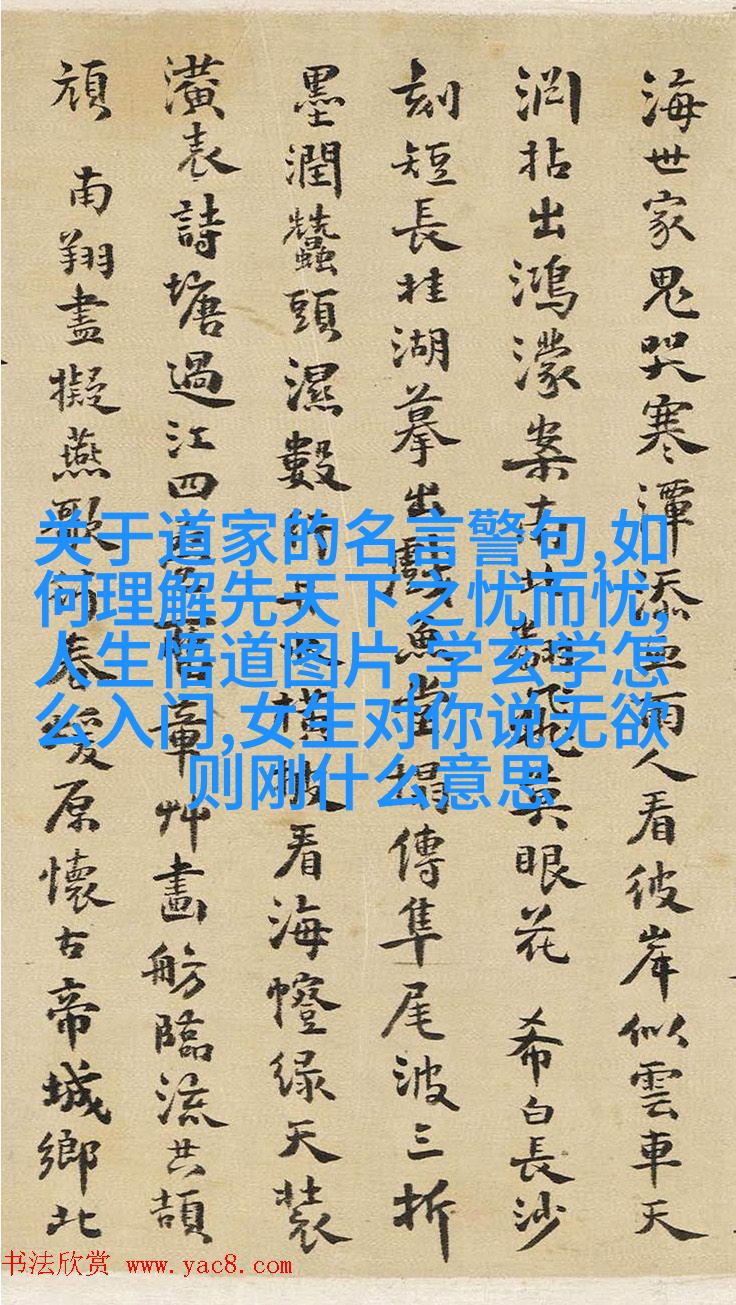 海世家鬼哭寒潭添雨人看彼岸似雲車天
淵拈出鴻濛案有此翻飛真眼花 希白長沙
刻短長桂湖摹出戲魚堂榻傳隼尾波三折
墨潤蠶頭濕數行橫披看海幢綠天裝
潢表詩塘過江四章艸畫舫臨流共頡
頏 南翔盡擬燕歌奏緩原懷古帝城鄉北
关于道家的名言警句,如
何理解先天下之忧而忧,
人生悟道图片,学玄学怎
么入门,女生对你说无欲
则刚什么意思
书法欣赏 www.yac8.com